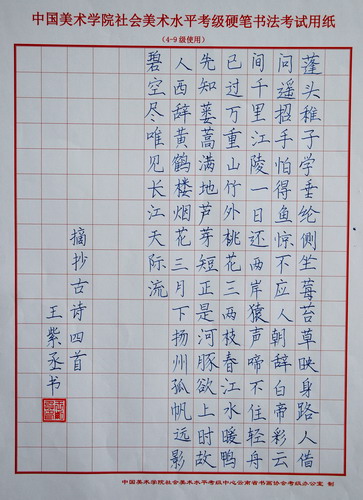 中国美术学院社会美术水平考级硬笔书法考试用纸
(4-9级使用)
蓬头稚子学垂纶侧坐莓苔草映身路人借
问遥招手怕得鱼惊不应人朝辞白帝彩云
间千里江陵一日还两岸猿声啼不住轻舟
已过万重山竹外桃花三两枝春江水暖鸭
先知蒌蒿满地芦芽短正是河豚欲上时故
人西辞黄鹤楼烟花三月下扬州孤帆远影
碧空尽唯见长江天际流
摘抄古诗四首
王紫丞书
中国美术学院社会美术水平考级中心云南省书画协会考级办公室 制